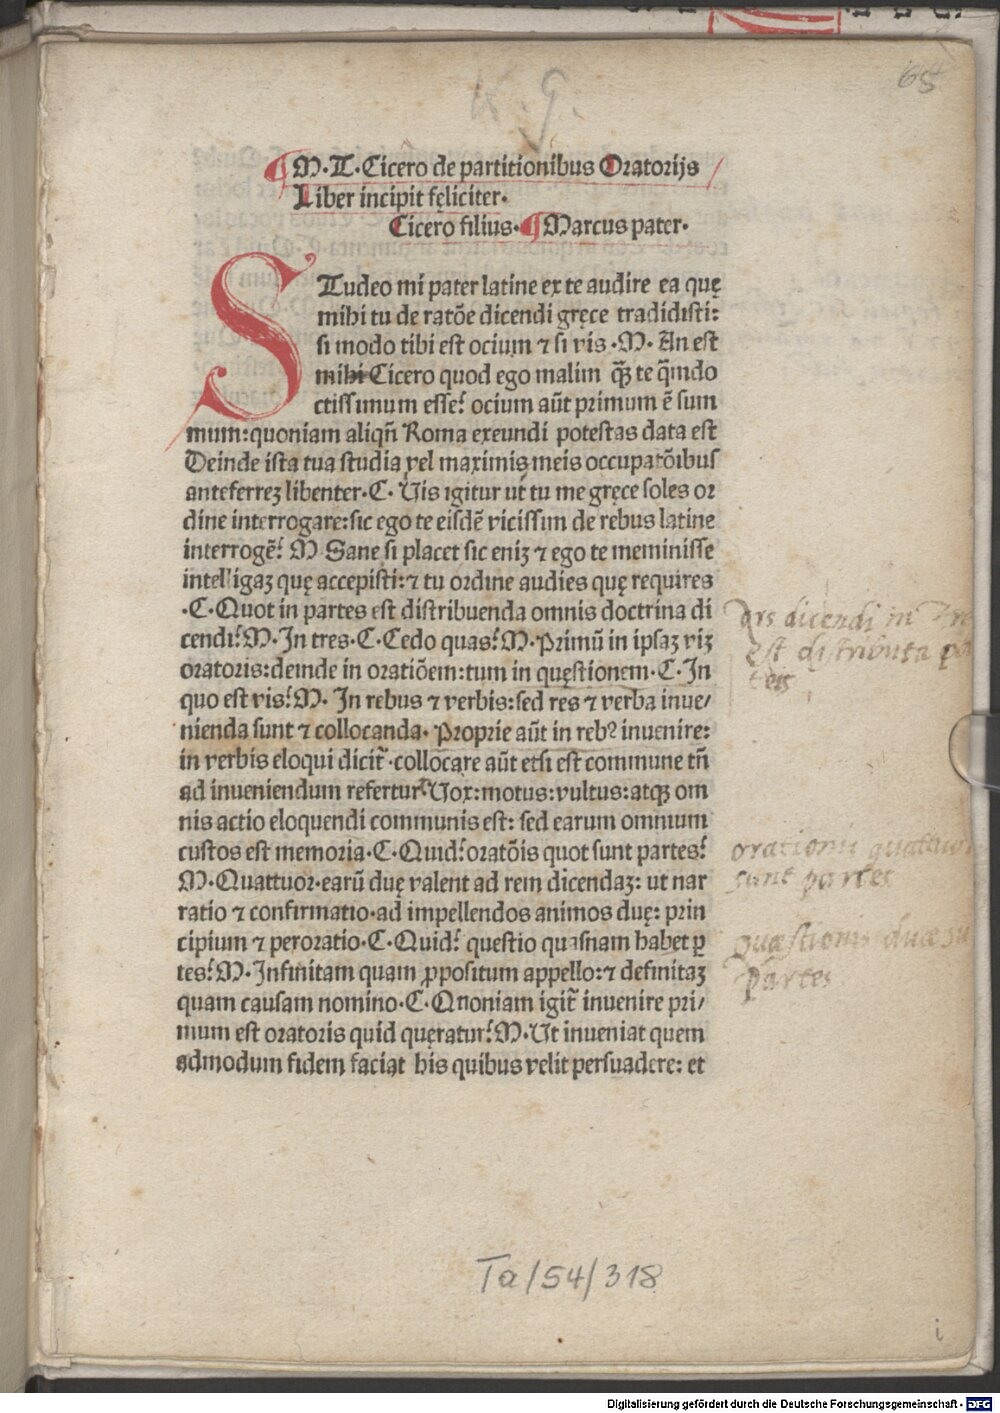 65
K. G.
¶M·T·Cicero de partitionibus Oratorijs
Liber incipit fęliciter·
Cicero filius·¶Marcus pater·
STudeo mi pater latine ex te audire ea quę
mihi tu de ratōe dicendi gręce tradidisti:
si modo tibi est ocium ⁊ si vis ·M· An est
mihi Cicero quod ego malim q̄ꝫ te q̄mdo
ctissimum esse? ocium aūt primum ē sum
mum:quoniam aliqn̄ Roma exeundi potestas data est
Deinde ista tua studia vel maximis meis occupatōibus
anteferreꝫ libenter·C· Vis igitur ut tu me gręce soles or
dine interrogare:sic ego te eisdē vicissim de rebus latine
interrogē? M Sane si placet sic eniꝫ ⁊ ego te meminisse
intelligaꝫ quę accepisti:⁊ tu ordine audies quę requires
·C·Quot in partes est distribuenda omnis doctrina di
cendi?M·In tres·C·Cedo quas?M·Primū in ipsaꝫ viꝫ
oratoris:deinde in oratiōem:tum in quęstionem·C·In
quo est vis?M· In rebus ⁊ verbis:sed res ⁊ verba inue/
nienda sunt ⁊ collocanda· Proprie aūt in rebꝰ inuenire:
in verbis eloqui dicit̄·collocare aūt etsi est commune tn̄
ad inueniendum refertur·Vox:motus:vultus:atqꝫ om
nis actio eloquendi communis est: sed earum omnium
custos est memoria·C·Quid?oratōis quot sunt partes?
M·Quattuor·earū duę valent ad rem dicendaꝫ: ut nar
ratio ⁊ confirmatio·ad impellendos animos duę: prin
cipium ⁊ peroratio·C·Quid? questio quasnam habet ꝑ
tes?M·Infinitam quam ꝓpositum appello:⁊ definitaꝫ
quam causam nomino·C·Qnoniam igit̄ inuenire pri/
mum est oratoris quid quęratur?M·Ut inueniat quem
admodum fidem faciat his quibus velit persuadere: et
Ars dicendi in Tre
est distributa pa
teis
orationis quattuor
sunt partes
quæstionis duæ su
partes
Ta/54/318
i
Digitalisierung gefördert durch die Deutsche Forschungsgemeinschaft - DFG